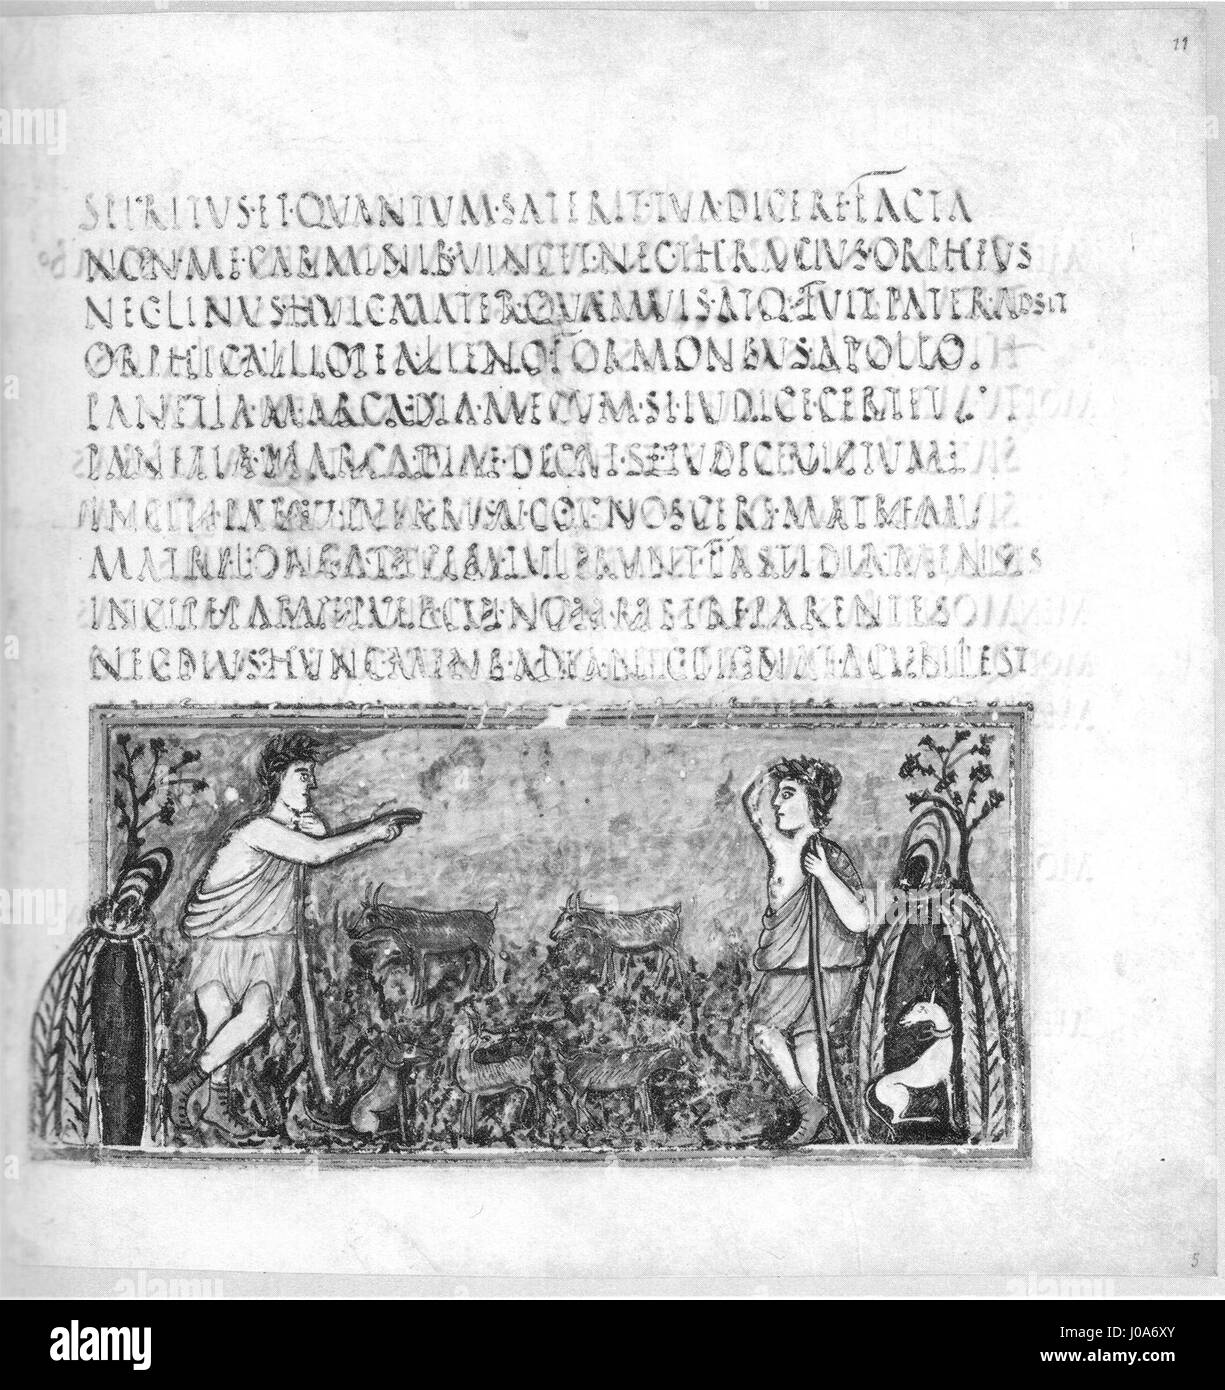 11
SPIRITUS·ET·QUANTUM·SATERIT·TUA·DICERE·FACTA
NON·ME·CARMINIB·VINCET·NEC·THRACIUS·ORPHEUS
NEC·LINUS·HUIC·MATER·QUAMVIS·ATQ·HUIC·PATER·ADSIT
ORPHI·CALLIOPEA·LINO·FORMONSUS·APOLLO.
PAN·ETIAM·ARCADIA·MECUM·SI·IUDICE·CERTET
PAN·ETIAM·ARCADIAE·DICAT·SE·IUDICE·VICTUM
INCIPE·PARVE·PUER·RISU·COGNOSCERE·MATREM
MATRI·LONGA·TULERUNT·FASTIDIA·MENSES
INCIPE·PARVE·PUER·CUI·NON·RISERE·PARENTES
NEC·DIUS·HUNC·MENSA·DEA·NEC·DIGNATA·CUBILEST
5
alamy
Image ID: J0A6XY
www.alamy.com